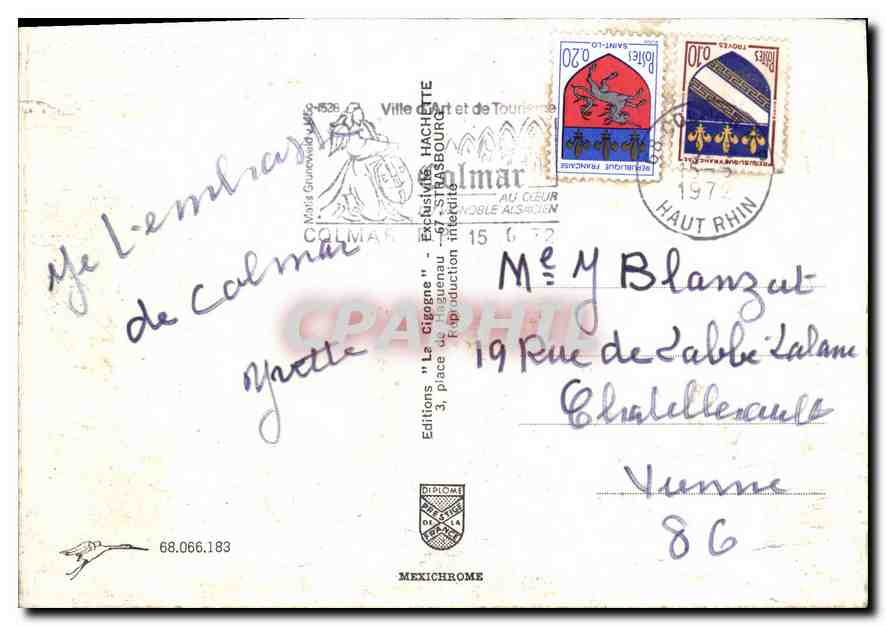 Je t'embrasse
de Colmar
Yvette
Mathis Grunewald
Ville d'Art et de Tourisme
Colmar
AU CŒUR
VIGNOBLE ALSACIEN
COLMAR R.P. 15
0,20 POSTES
SAINT-LO
REPUBLIQUE FRANÇAISE
0,10 POSTES
TROYES
REPUBLIQUE FRANÇAISE
1972
HAUT RHIN
Me Y Blanzat
19 Rue de L'abbé Lalane
Chatellerault
Vienne
86
Editions "La Cigogne" - Exclusivité HACHETTE
3, place de Haguenau - 67 - STRASBOURG
Reproduction interdite
CPAPHIL
DIPLOME
PRESTIGE
DE LA
FRANCE
68.066.183
MEXICHROME